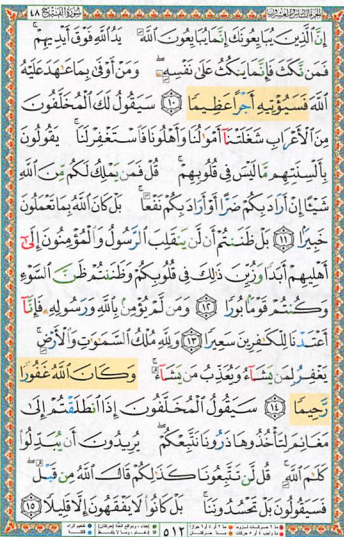 سورة الفتح ٤٨
الجزء السادس والعشرون
إِنَّ ٱلَّذِينَ يُبَايِعُونَكَ إِنَّمَا يُبَايِعُونَ ٱللَّهَ يَدُ ٱللَّهِ فَوْقَ أَيْدِيهِمْ ۚ
فَمَن نَّكَثَ فَإِنَّمَا يَنكُثُ عَلَىٰ نَفْسِهِۦ ۖ وَمَنْ أَوْفَىٰ بِمَا عَـٰهَدَ عَلَيْهُ
ٱللَّهَ فَسَيُؤْتِيهِ أَجْرًا عَظِيمًا ١٠ سَيَقُولُ لَكَ ٱلْمُخَلَّفُونَ
مِنَ ٱلْأَعْرَابِ شَغَلَتْنَآ أَمْوَٰلُنَا وَأَهْلُونَا فَٱسْتَغْفِرْ لَنَا ۚ يَقُولُونَ
بِأَلْسِنَتِهِم مَّا لَيْسَ فِى قُلُوبِهِمْ ۚ قُلْ فَمَن يَمْلِكُ لَكُم مِّنَ ٱللَّهِ
شَيْـًٔا إِنْ أَرَادَ بِكُمْ ضَرًّا أَوْ أَرَادَ بِكُمْ نَفْعًۢا ۚ بَلْ كَانَ ٱللَّهُ بِمَا تَعْمَلُونَ
خَبِيرًۢا ١١ بَلْ ظَنَنتُمْ أَن لَّن يَنقَلِبَ ٱلرَّسُولُ وَٱلْمُؤْمِنُونَ إِلَىٰٓ
أَهْلِيهِمْ أَبَدًا وَزُيِّنَ ذَٰلِكَ فِى قُلُوبِكُمْ وَظَنَنتُمْ ظَنَّ ٱلسَّوْءِ
وَكُنتُمْ قَوْمًۢا بُورًا ١٢ وَمَن لَّمْ يُؤْمِنۢ بِٱللَّهِ وَرَسُولِهِۦ فَإِنَّآ
أَعْتَدْنَا لِلْكَـٰفِرِينَ سَعِيرًا ١٣ وَلِلَّهِ مُلْكُ ٱلسَّمَـٰوَٰتِ وَٱلْأَرْضِ ۚ
يَغْفِرُ لِمَن يَشَآءُ وَيُعَذِّبُ مَن يَشَآءُ ۚ وَكَانَ ٱللَّهُ غَفُورًا
رَّحِيمًا ١٤ سَيَقُولُ ٱلْمُخَلَّفُونَ إِذَا ٱنطَلَقْتُمْ إِلَىٰ
مَغَانِمَ لِتَأْخُذُوهَا ذَرُونَا نَتَّبِعْكُمْ ۖ يُرِيدُونَ أَن يُبَدِّلُوا۟
كَلَـٰمَ ٱللَّهِ ۚ قُل لَّن تَتَّبِعُونَا كَذَٰلِكُمْ قَالَ ٱللَّهُ مِن قَبْلُ ۖ
فَسَيَقُولُونَ بَلْ تَحْسُدُونَنَا ۚ بَلْ كَانُوا۟ لَا يَفْقَهُونَ إِلَّا قَلِيلًا ١٥
٥١٢